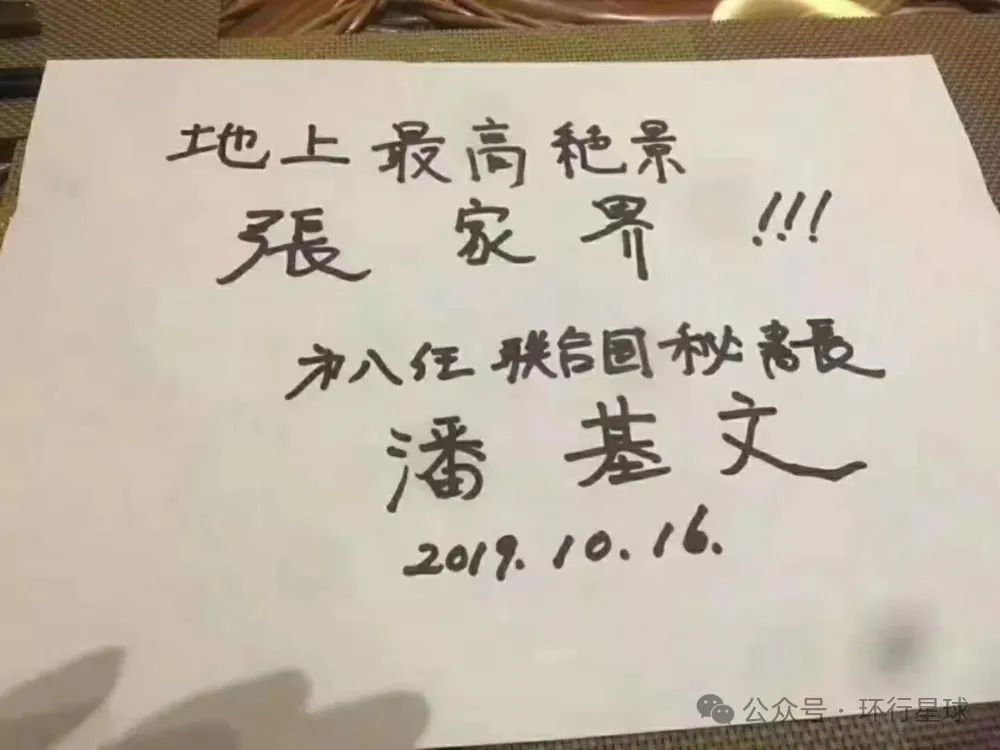 地上最高绝景
張家界!!!
第八任 联合国秘书長
潘基文
2019.10.16.
公众号·环行星球